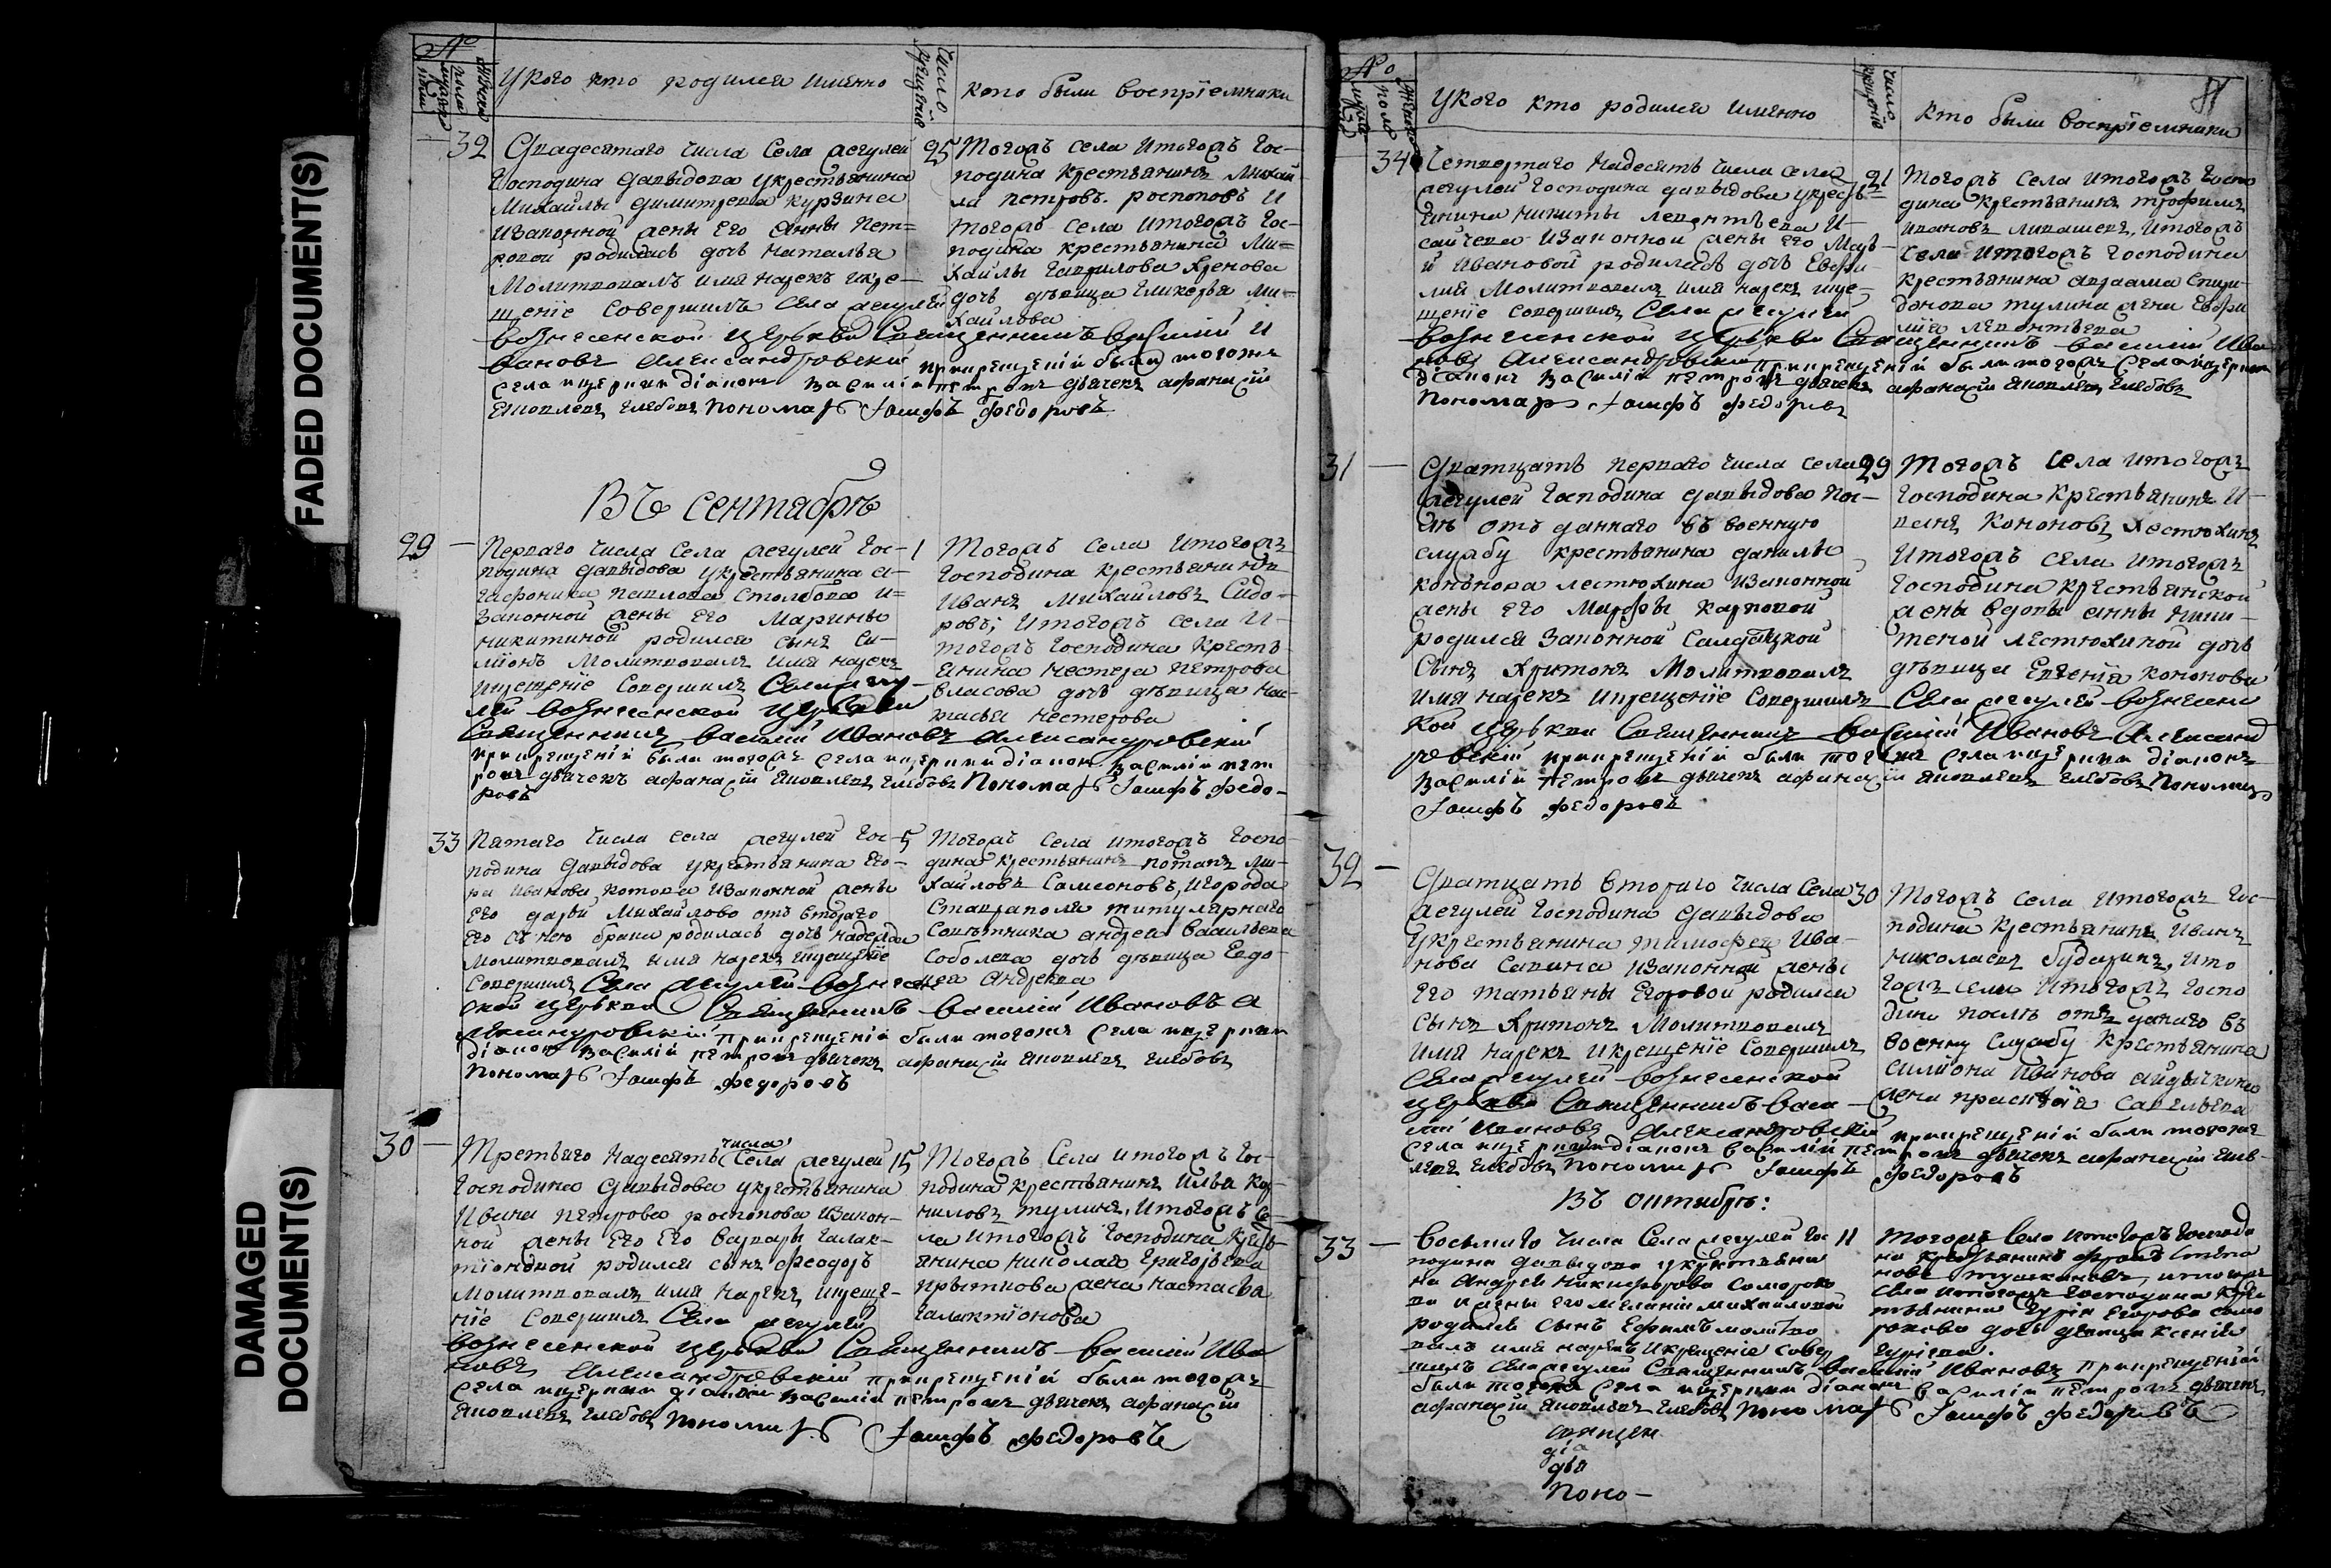 FADED DOCUMENT(S)
DAMAGED
DOCUMENT(S)
№
мужеска
пола
женска
У кого кто родился имянно
Число
крещенïе
кто были воспрïемники
32
Двадесятаго числа Села жегулей
Господина Давыдова у крестьянина
Михайлы димитрева Курзина
и законной жены его Анны Пет=
ровой родилась дочь Наталья
Молитвовалъ имя нарекъ и кре-
щенïе Совершилъ Села жегулей
вознесенской церькви Священникъ Василий И
вановъ Александровский при крещенïи были тогожъ
села и церкви дïаконъ Василïи петровъ дьячекъ афанасïй
Яковлевъ глебовъ Пономарь Iосифъ Федоровъ
25
Тогожъ села и тогожъ гос-
подина крестьянинъ Михай
ла петровъ роспоповъ и
тогожъ села и тогожъ гос-
подина крестьянина Ми=
хайлы гаврилова Хренова
дочь девица гликерья Ми-
хайлова
Въ Сентябрѣ
29
Перваго числа Села жегулей гос-
подина Давыдова у крестьянина а-
гафоника павлова Столбова и=
законной жены его Марины
никитиной родился сынъ Си-
мïонъ Молитвовалъ имя нарекъ
и крещенïе Совершилъ Села жегу-
лей вознесенской церькви
Священникъ Василий Ивановъ Александровский
при крещенïи были тогожъ села и церкви дïаконъ Василïи пет
ровъ дьячекъ афанасïй Яковлевъ глебовъ Пономарь Iосифъ Федо-
ровъ
1
Тогожъ села и тогожъ
господина крестьянинъ
Иванъ Михайловъ Сидо-
ровъ; и тогожъ села и-
тогожъ господина кресть-
янина нестера петрова
власова дочь девица нас-
тасья нестерова
33
Пятаго числа села жегулей гос-
подина Давыдова у крестьянина его-
ра Иванова Котова и законной жены
его дарьи Михайлово отъ втораго
его съ нею брака родилась дочь надежда
Молитвовалъ имя нарекъ и крещенïе
совершилъ Села жегулей вознесен-
ской церькви Священникъ Василий Ивановъ А
лександровский при крещенïи были тогожъ села и церкви
дïаконъ Василïй петровъ дьячекъ афанасïй Яковлевъ глебовъ
Пономарь Iосифъ Федоровъ
5
Тогожъ села и тогожъ госпо-
дина крестьянинъ потапъ Ми-
хайловъ Самсоновъ, и города
Ставраполя титулярнаго
Советника андрея васильева
Соболева дочь девица Евдо-
кея Андрева
30
Третьяго надесять числа Села жегулей
господина Давыдова у крестьянина
Ивана петрова роспопова и закон-
ной жены его его варвары галак-
тïоновой родился сынъ Феодоръ
Молитвовалъ имя нарекъ и креще-
нïе Совершилъ Села жегулей
вознесенской церькви Священникъ Василий Ива
новъ Александровский при крещенïи были тогожъ
села и церкви дïаконъ Василïи петровъ дьячекъ афанасïй
Яковлевъ глебовъ Пономарь Iосифъ Федоровъ
15
Тогожъ Села и тогожъ гос-
подина крестьянинъ Илья Кор-
ниловъ тулинъ, и тогожъ се-
ла и тогожъ господина кресть-
янина николая григорьева
прыткова жена настасья
галактïонова
№
мужеска
пола
женска
У кого кто родился имянно
Число
крещенïе
Кто были воспрïемники
34
Четвертаго надесять числа села
жегулей господина давыдова у кресть=
янина никиты леонтьева И-
сайчева и законной жены его Марь-
и Ивановой родилась дочь Евфи-
мия Молитвовалъ имя нарекъ и кре-
щенïе совершилъ Села жегулей
вознесенской церькви Священникъ Василий Ива
новъ Александровский при крещенïй были тогожъ села и церкви
дïаконъ Василïи петровъ дьячекъ афанасïй Яковлевъ глебовъ
Пономарь Iосифъ Федоровъ
21
Тогожъ Села и тогожъ госпо
дина крестьянинъ трофимъ
ивановъ ливашевъ, и тогожъ
села и тогожъ господина
крестьянина авраама Спири-
донова тулина жена Евфи
мïя леонтьева
31
Дватцать перваго числа села
жегулей господина давыдова пос-
лѣ отъ даннаго въ военную
службу крестьянина данилы
кононова лестюхина и законной
жены его Марфы карповой
родился законной Салдатской
Сынъ Харитонъ Молитвовалъ
имя нарекъ и крещенïе совершилъ Села жегулей вознесенс
кой церькви Священникъ Василий Ивановъ Александ
ровский при крещенïй были тогожъ села и церкви дïаконъ
Василïи петровъ дьячекъ афанасïй Яковлевъ глебовъ Пономарь
Iосифъ Федоровъ
29
Тогожъ Села и тогожъ
господина Крестьянинъ И-
ванъ Кононовъ лестюхинъ
и тогожъ села и тогожъ
господина крестьянской
жены вдовы анны ники-
теной лестюхиной дочь
девица Евгенïя Кононова
32
Дватцать втораго числа Села
жегулей господина Давыдова
у крестьянина тимофея Ива-
нова Савина и законной жены
его татьяны Егоровой родился
сынъ Харитонъ Молитвовалъ
имя нарекъ и крещенïе совершилъ
Села жегулей вознесенской
церькви Священникъ Васи-
лий Ивановъ Александровский при крещенïй были тогожъ
села и церкви дïаконъ Василïй петровъ дьячекъ афанасïй Яков-
левъ глебовъ Пономарь Iосифъ Федоровъ
30
Тогожъ села и тогожъ гос-
подина крестьянинъ Иванъ
николаевъ бударинъ, и то
гожъ села и тогожъ госпо
дина послѣ отъ данаго въ
военну службу крестьянина
симïона Иванова
жена савельева
Въ Октябрѣ:
33
Восьмаго числа Села жегулей гос
подина давыдова у крестьяни
на Андрея Никифорова Саморокo
ва и жены его меланïи михайловой
родился сынъ Ефимъ молитво
валъ имя нарекъ и крещенïе совер
шилъ Села жегулей Священникъ Василий Ивановъ при крещенïй
были тогожъ села и церкви дïаконъ Василïи петровъ дьячекъ
афанасïй Яковлевъ глебовъ Пономарь Iосифъ Федоровъ
11
Тогожъ Села и тогожъ господи
на крестьянинъ Степа
новъ и тогожъ
села и тогожъ господина кресть
янина Гурïя Егорова само
рокова дочь девица ксенïя
гурïева.
священ
дïа
дья
Поно-